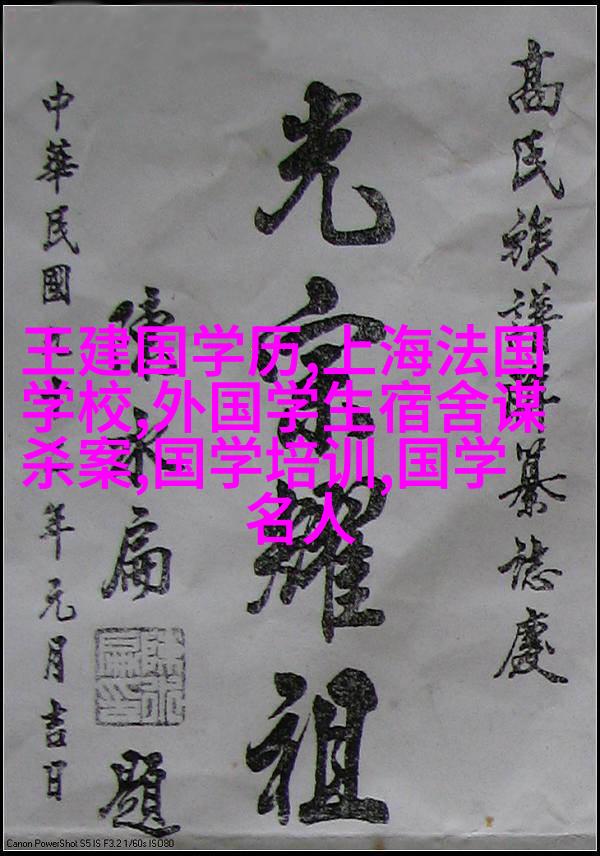 高氏族譜
纂誌慶
光宗耀祖
中華民國
年元月吉日
永扁
題
王建国学历,上海法国
学校,外国学生宿舍谋
杀案,国学培训,国学
名人
Canon PowerShot S5 IS F3.2 1/60s ISO80